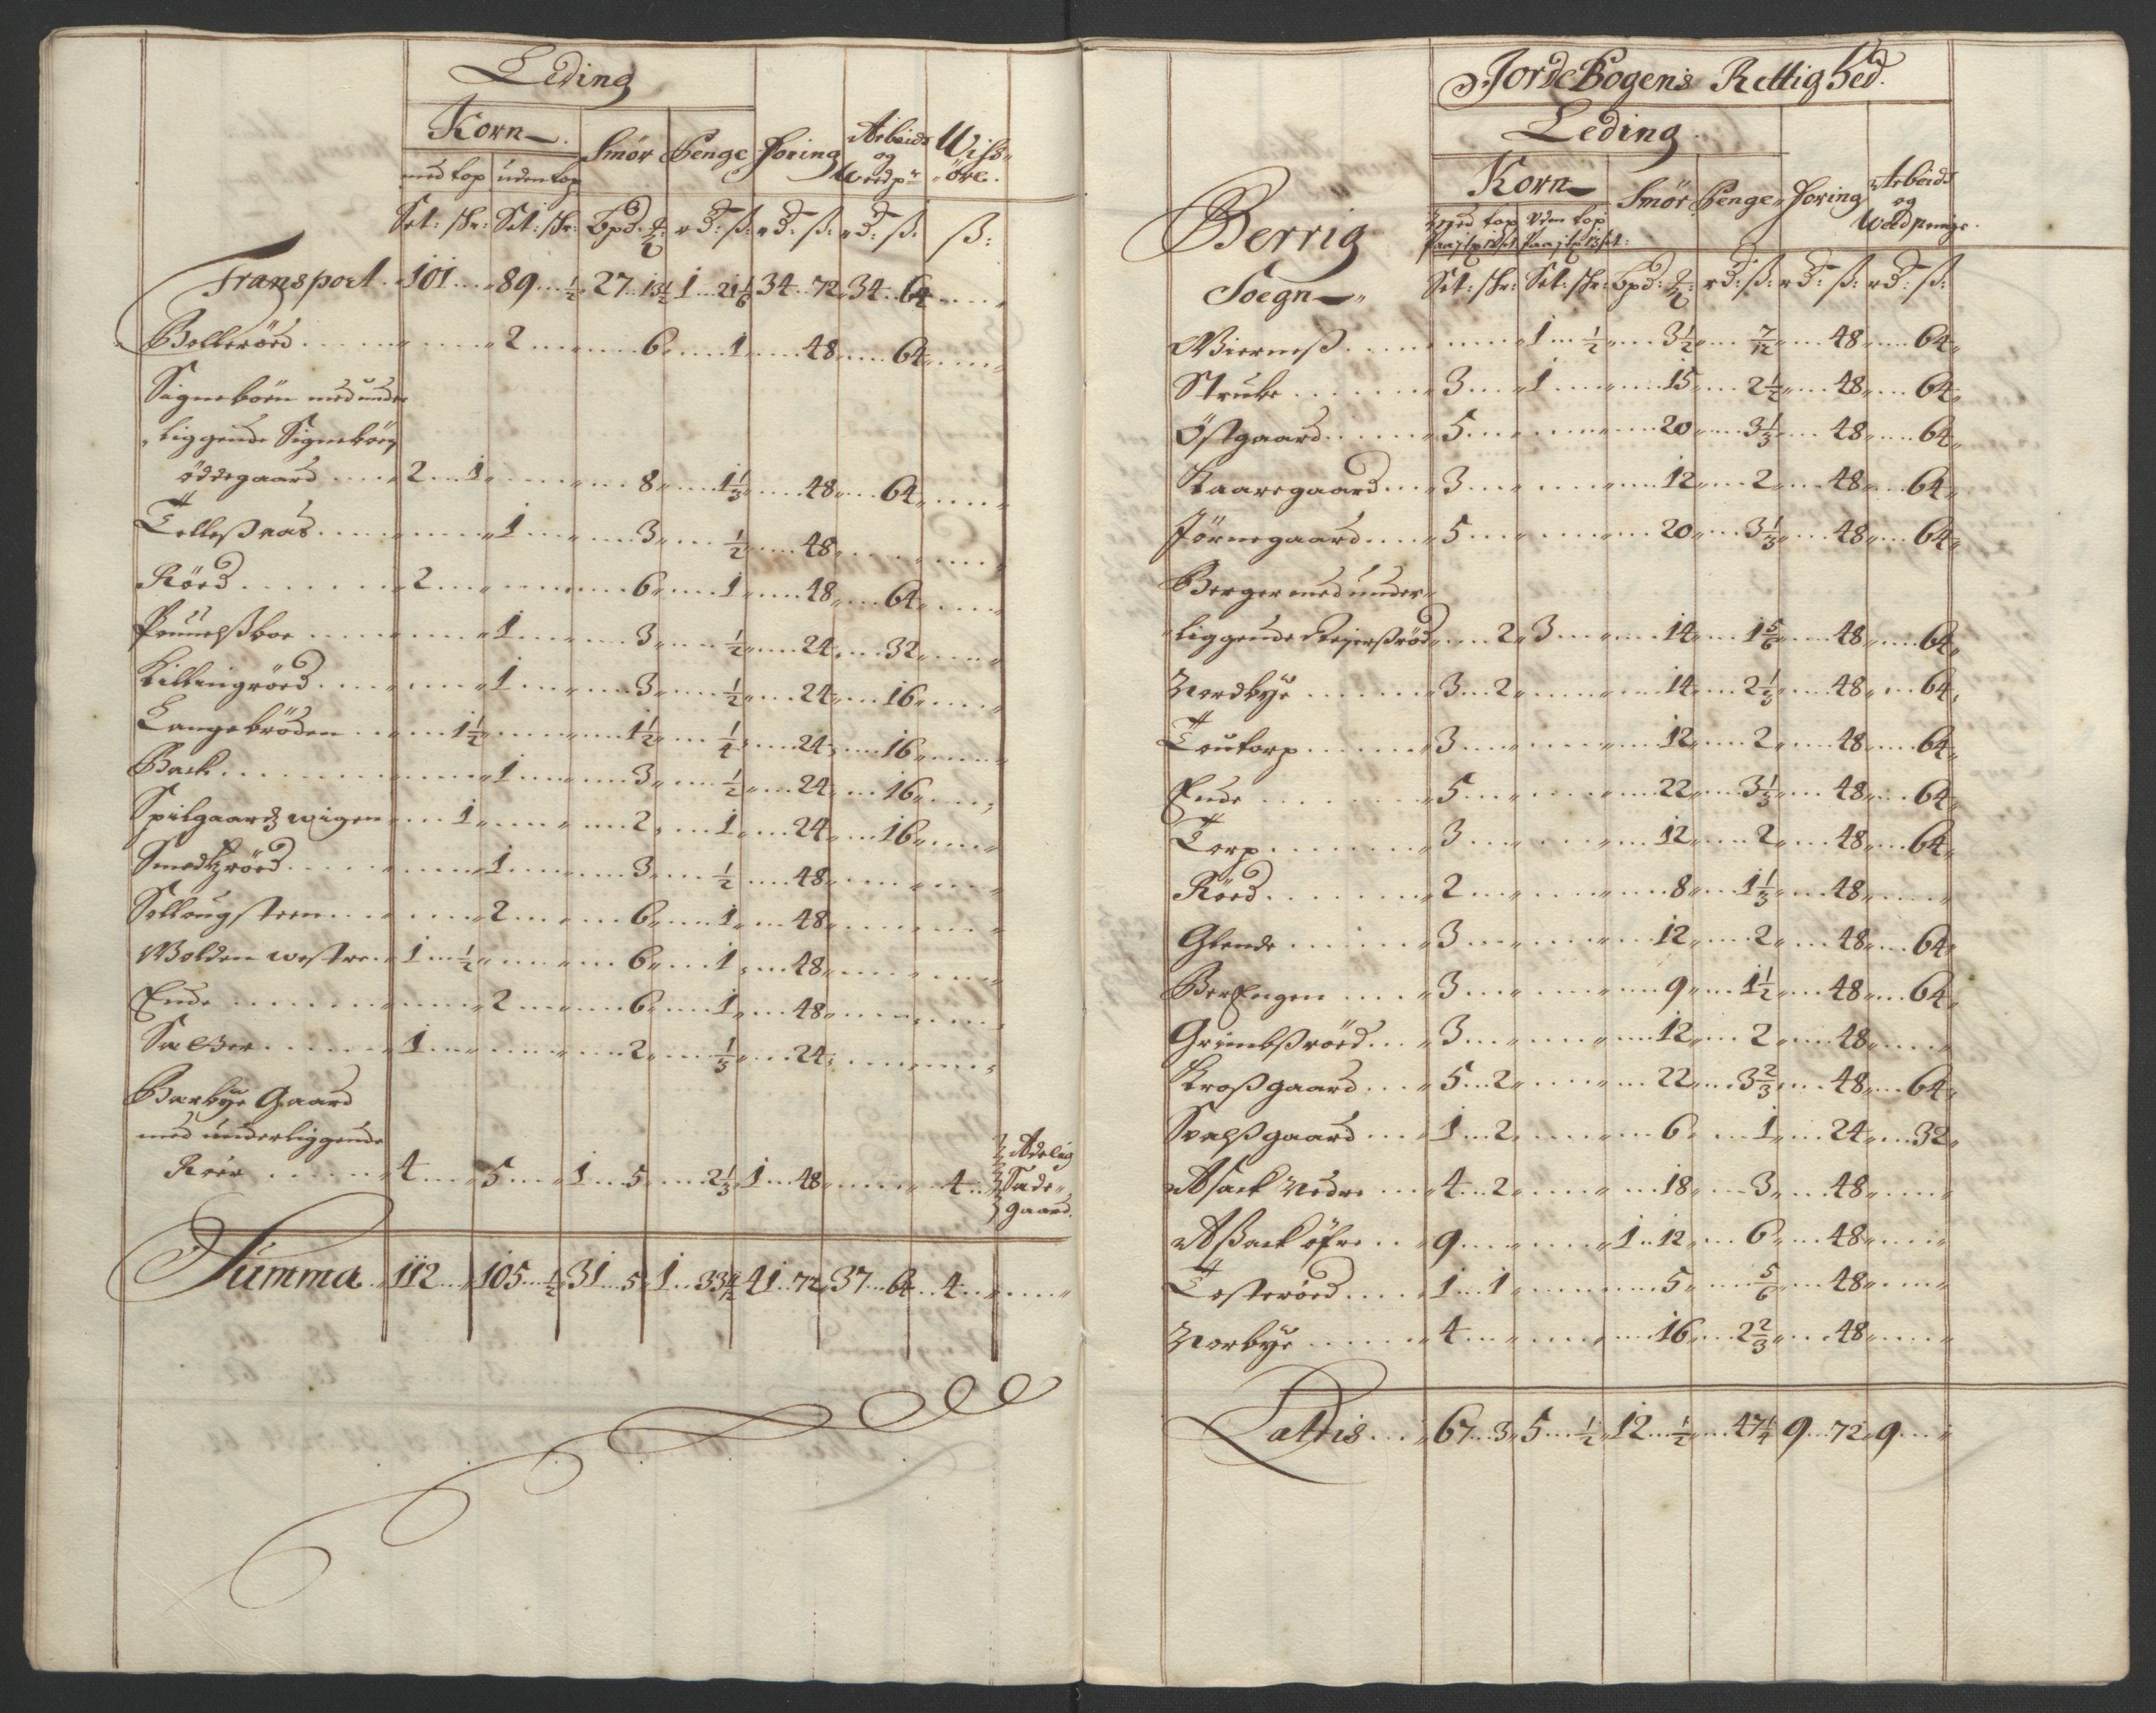 Leding
Korn
Smör Penge Foring Arbeids og Weedp: Wiss- öre.
med top uden top
Set: skr: Set: skr: bpd: rd: ß: rd: ß: rd: ß: ß:
Transport 101 89 ½ 27 13½ 1 21⅙ 34 72 34 64
Bolleröed 2 6 1 48 64
Signeböen med under
liggende Signeböen
öddegaard 2 1 8 1⅓ 48 64
Tolleßraas 1 3 ½ 48
Röed 2 6 1 48 64
1 3 ½ 24 32
Killingröed 1 3 ½ 24 16
Langebröden 1½ 1½ ¼ 24 16
Back 1 3 ½ 24 16
Spilgaardz wigen 1 2 1 24 16
Smedtzröed 1 3 ½ 48
Sollaugsteen 2 6 1 48
Wolden westre 1 ½ 6 1 48
Ende 2 6 1 48
1 2 ⅓ 24
Barbye Gaard
med underliggende
Röer 4 5 1 5 2⅓ 1 48 4 Adelig Sade- gaard.
Summa 112 105 ½ 31 5 1 41 72 37 64 4
JordeBogens Rettighed.
Leding
Berrig
Soegn
Korn
Smör Penge Foring Arbeids og Weedpenge
med top uden top
Set: skr: Set: skr: bpd: rd: ß: rd: ß: rd: ß:
Wierneß 1 ½ 3½ 7/12 48 64
Strube 3 1 15 2½ 48 64
Östgaard 5 20 3⅓ 48 64
Kaaregaard 3 12 2 48 64
Jörnegaard 5 20 3⅓ 48 64
Berger med under
liggende 2 3 14 1⅚ 48 64
Nordbye 3 2 14 2⅓ 48 64
Toutorp 3 12 2 48 64
Ende 5 22 3⅓ 48 64
Torp 3 12 2 48 64
Röed 2 8 1⅓ 48
Glende 3 12 2 48 64
BerEngen 3 9 1½ 48 64
Grimbßröed 3 12 2 48
Kroßgaard 5 2 22 3⅔ 48 64
Svalßgaard 1 2 6 1 24 32
Asack Nedre 4 2 18 3 48
Aßack öfre 9 1 12 6 48
Tosteröed 1 1 5 ⅚ 48
Norbye 4 16 2⅔ 48
Lattris 67 3 5 ½ 12 ½ 47¼ 9 72 9